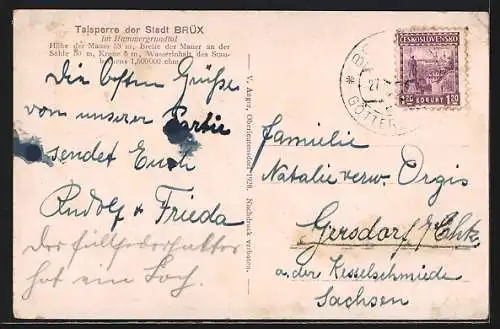 Talsperre der Stadt BRÜX
im Hammergrundtal
Höhe der Mauer 53 m, Breite der Mauer an der
Sohle 50 m, Krone 5 m, Wasserinhalt des Stau-
beckens 1,500000 cbm
Die besten Grüße
von unserer Partie
sendet Euch
Rudolf & Frieda
Der Füllfederhalter
hat ein Loch.
V. Auger, Oberleutensdorf 1928. Nachdruck verboten.
ČESKOSLOVENSKO
1.20 KORUNY 1.20
27
Familie
Natalie verw. Orgis
Gersdorf
a. der Kesselschmiede
Sachsen